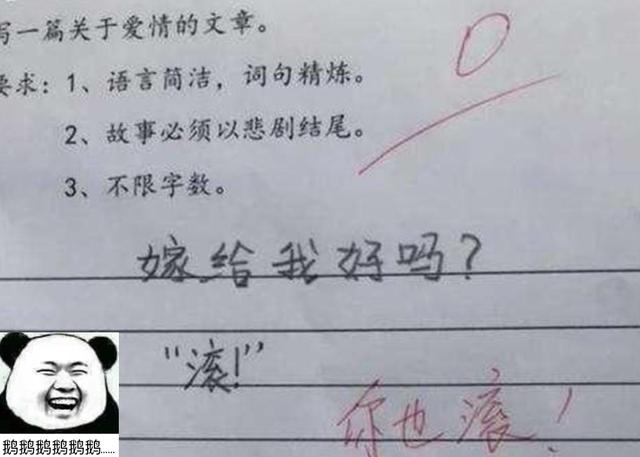 写一篇关于爱情的文章。
0
要求：1、语言简洁，词句精炼。
2、故事必须以悲剧结尾。
3、不限字数。
嫁给我好吗？
“滚！”
你也滚！
鹅鹅鹅鹅鹅鹅......